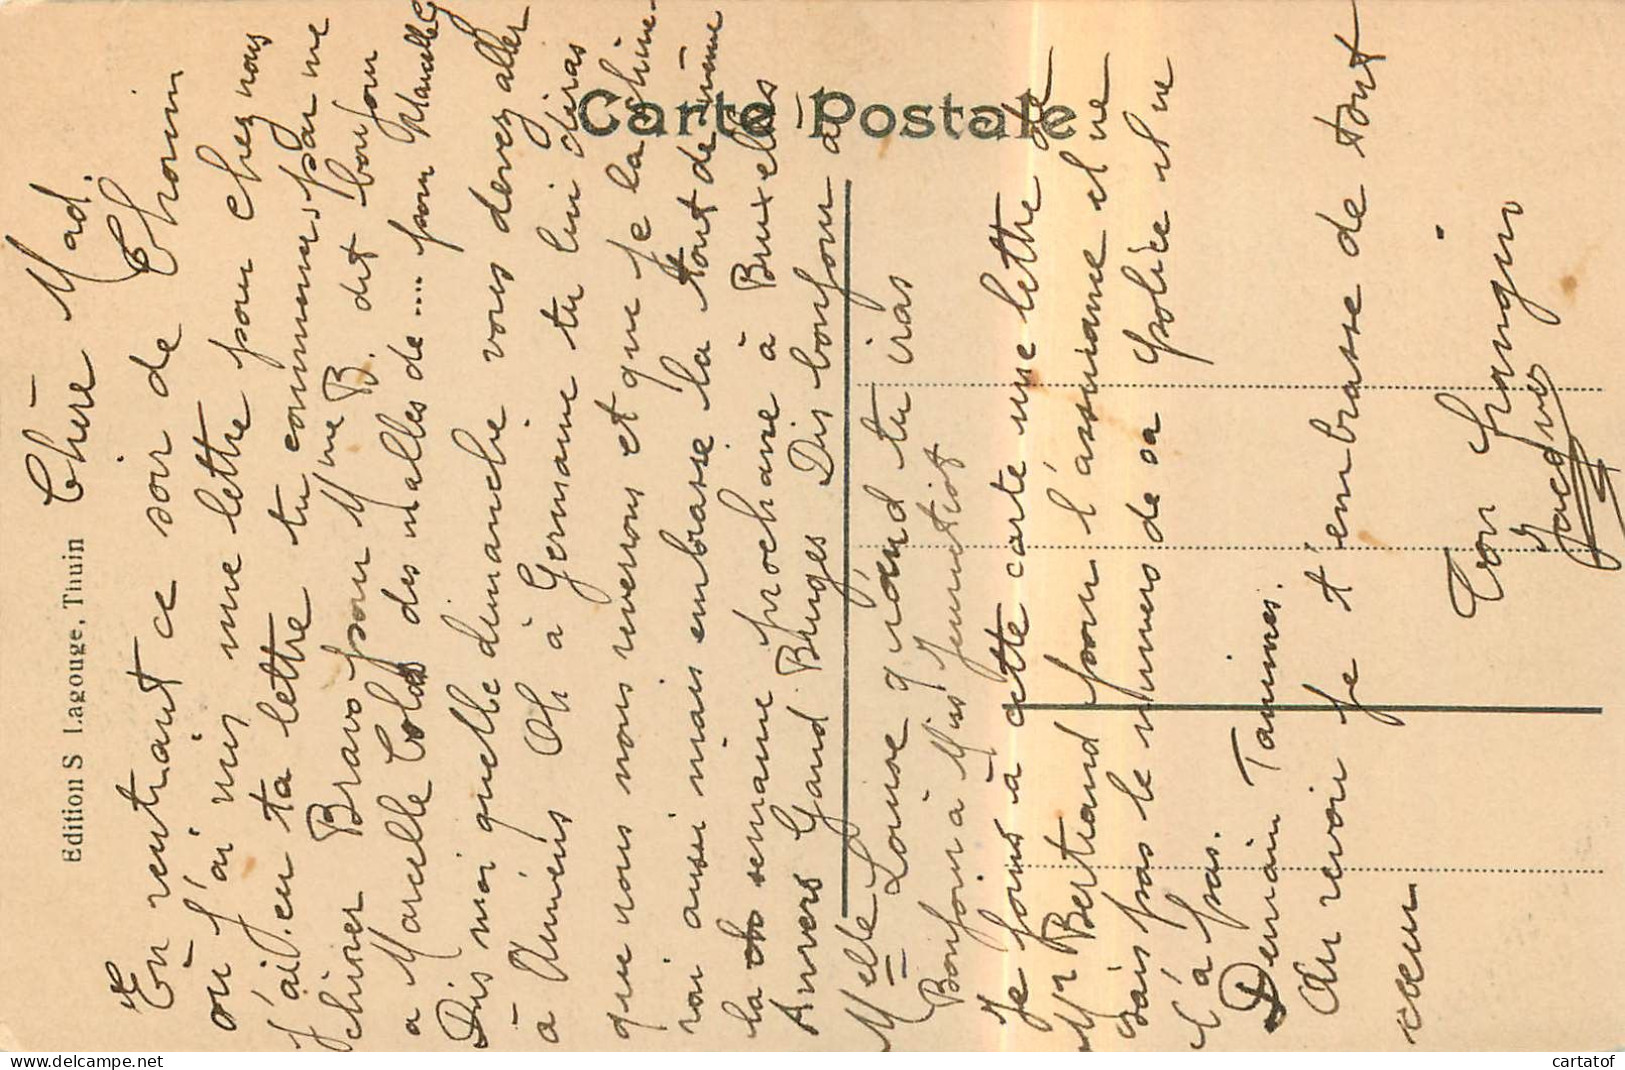 Carte Postale
Edition S Lagouge, Thuin
Chère Mad.
En rentrant ce soir de Thouin
où j'ai mis une lettre pour chez nous
j'ai eu ta lettre tu commences par me
chiner Bravo pour Mme B. dit bonjour
a Marcelle Colas des malles de .... pour Marcelle C
Dis moi quelle dimanche vous devez aller
à Amiens Oh à Germaine tu lui diras
que nous nous reverrons et que je la chine-
rai aussi mais embrasse la tout de même
la semaine prochaine à Bruxelles
Anvers Gand Bruges Dis bonjour à
Melle Louise quand tu iras
Bonjour à Miss
Je joins à cette carte une lettre de
Mr Bertrand pour l'assurance il ne
sais pas le numero de sa police il ne
l'a pas.
Demain Tamines.
Au revoir je t'embrasse de tout
cœur
Ton frangin
Jacques
cartatof